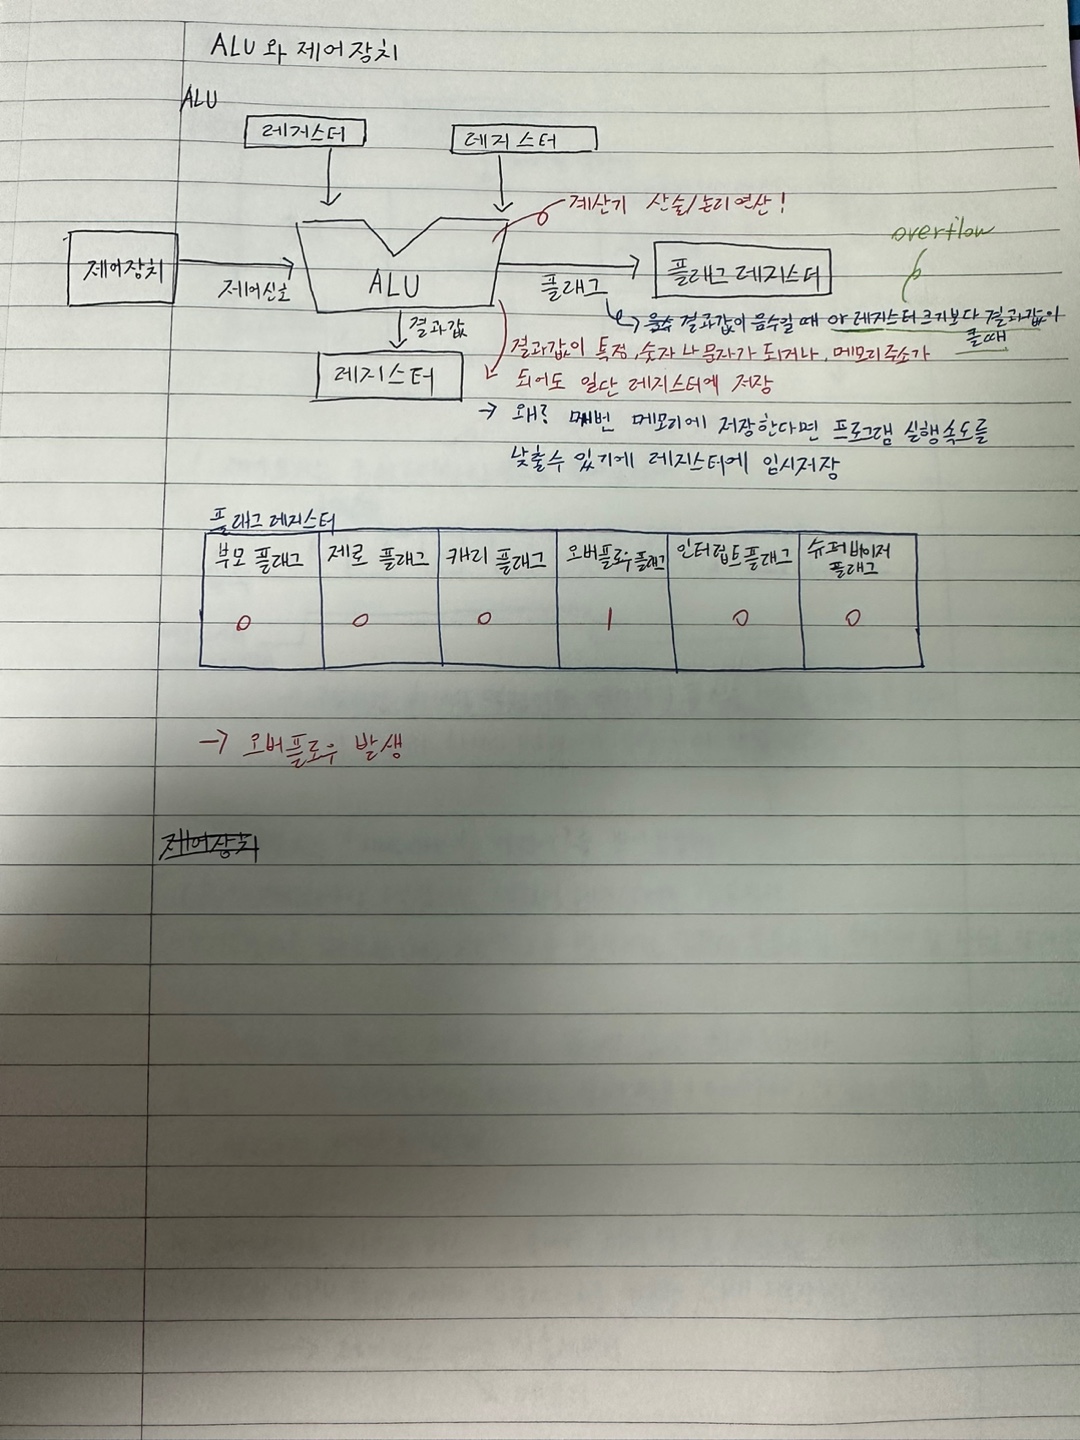 ALU 와 제어장치
ALU
레지스터
레지스터
계산기 산술/논리 연산!
overflow
제어장치
제어신호
ALU
플래그
플래그 레지스터
결과값이 음수일 때 or 레지스터 크기보다 결과값이
클 때
결과값
레지스터
결과값이 특정, 숫자 나 문자가 되거나, 메모리 주소가
되어도 일단 레지스터에 저장
→ 왜? 매번 메모리에 저장한다면 프로그램 실행속도를
낮출수 있기에 레지스터에 임시저장
플래그 레지스터
부모 플래그 제로 플래그 캐리 플래그 오버플로우 플래그 인터럽트 플래그 슈퍼바이저
플래그
0 0 0 1 0 0
→ 오버플로우 발생
제어장치